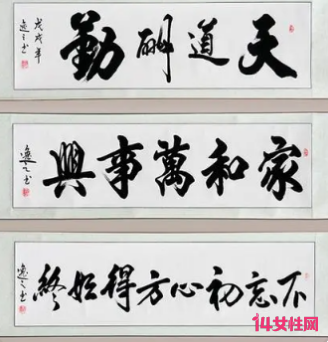 天道酬勤
戊戌年
逸之书
家和萬事興
逸之书
不忘初心方得始終
逸之书
14女性网